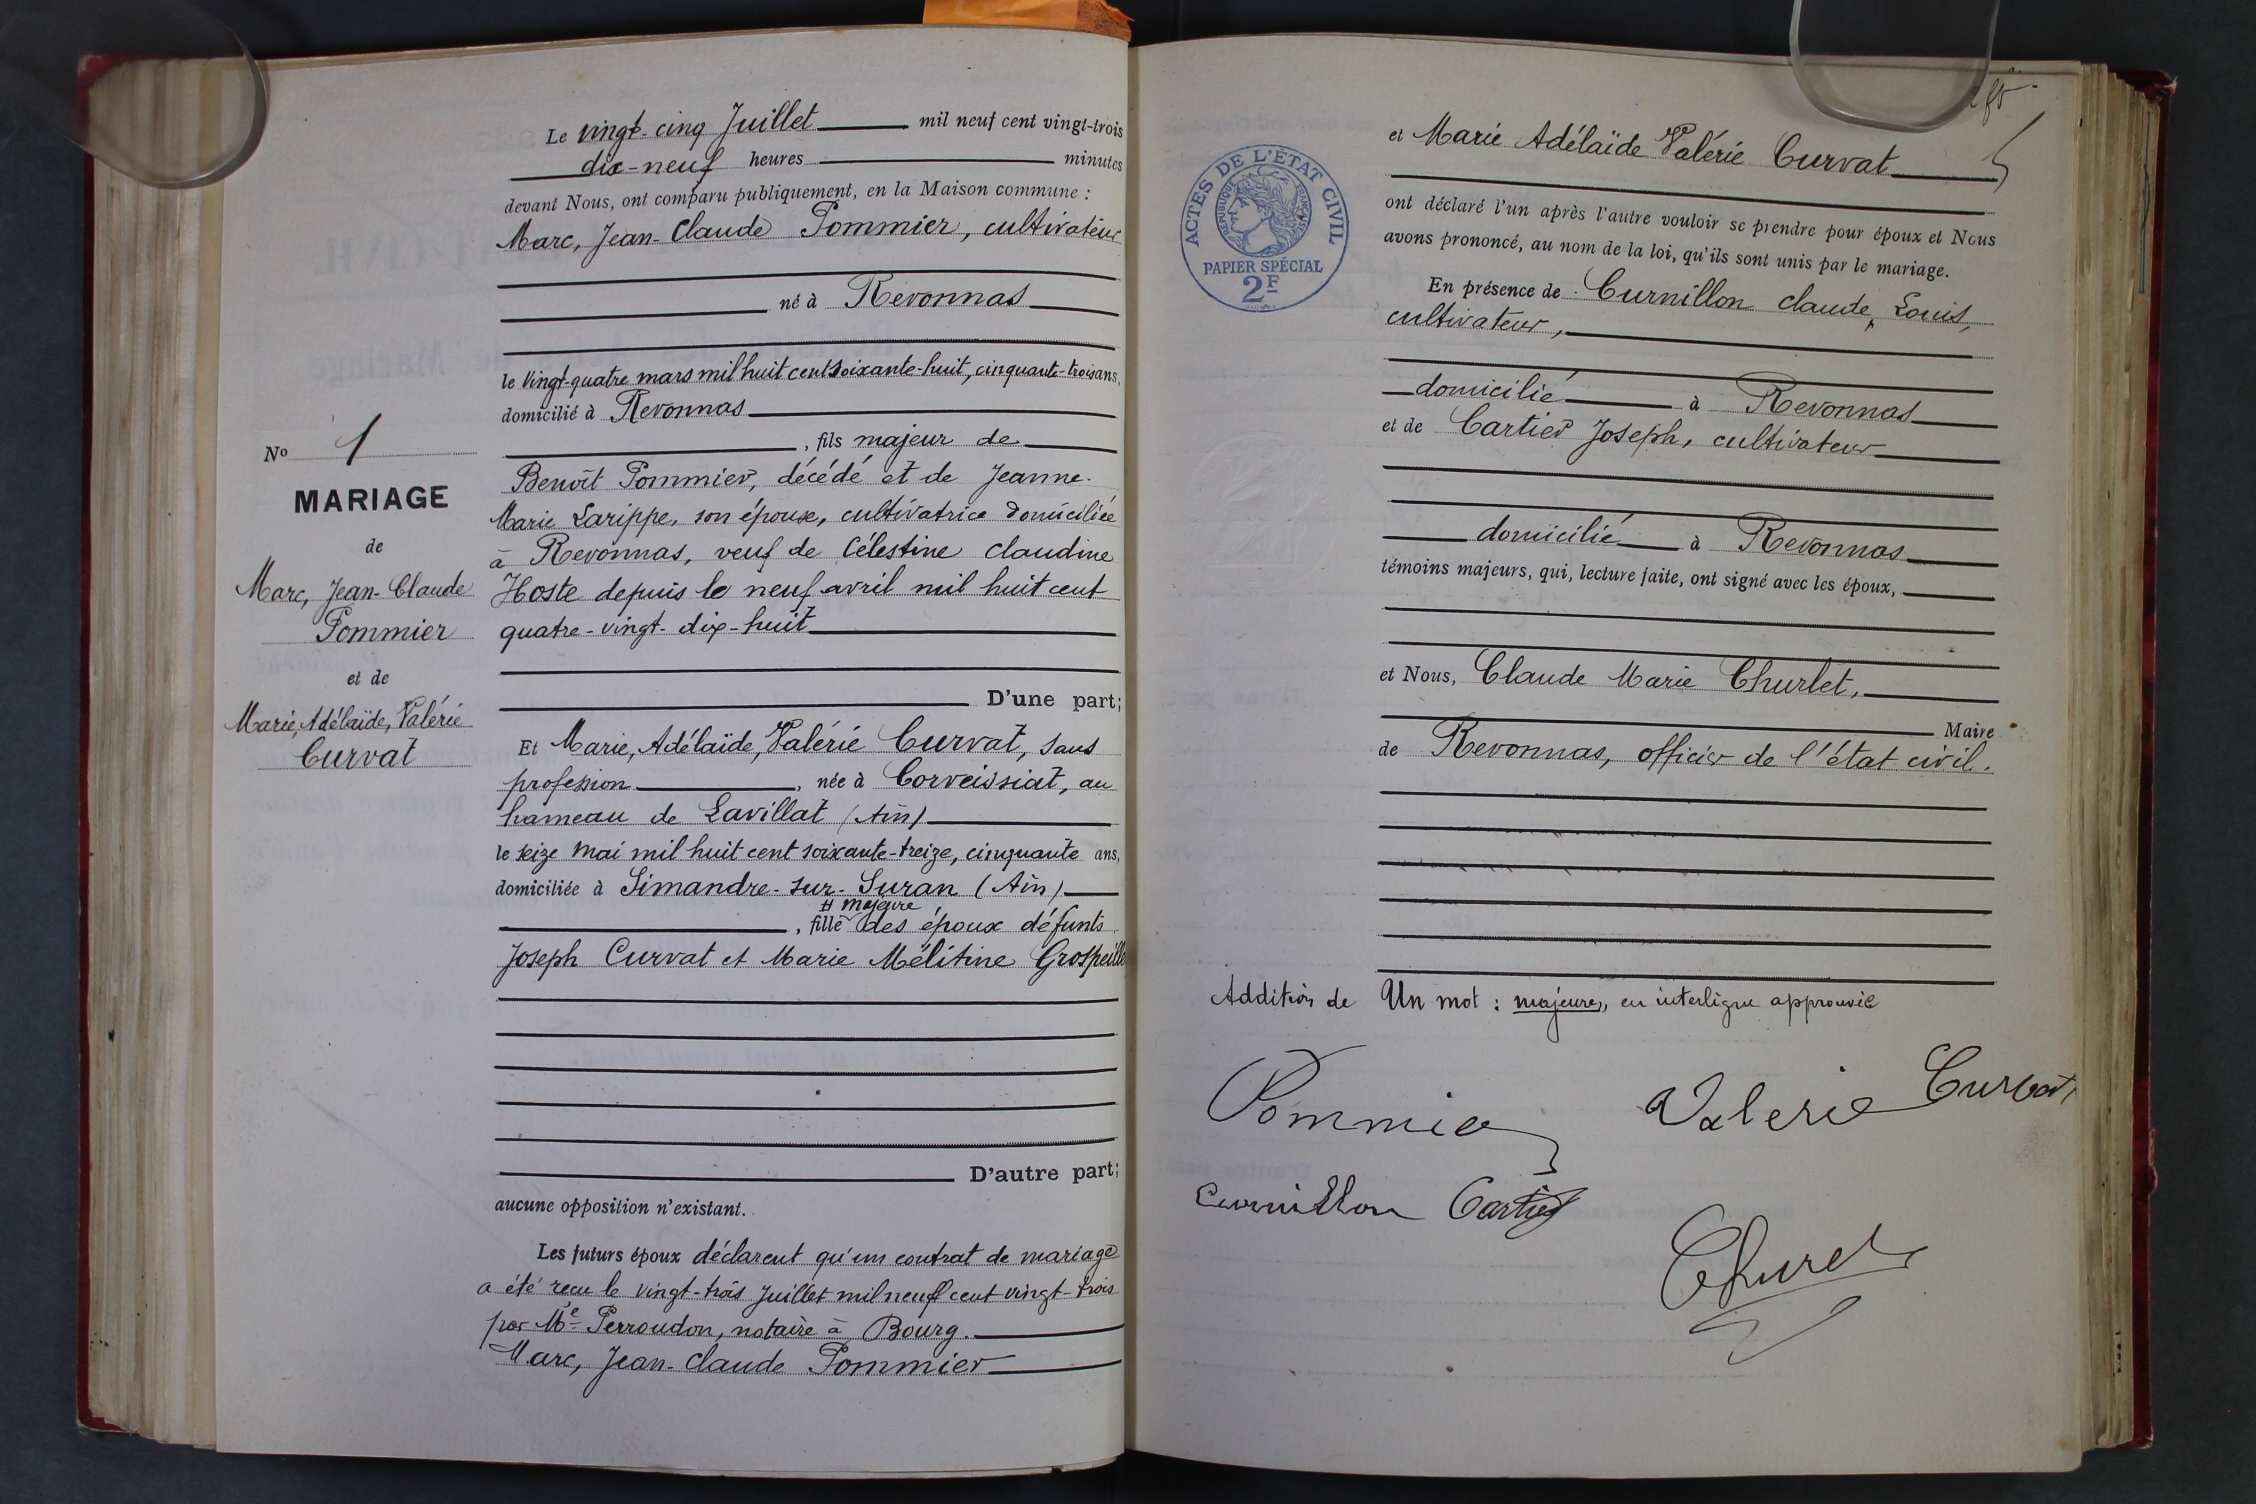 Le vingt-cinq Juillet mil neuf cent vingt-trois
dix-neuf heures minutes
devant Nous, ont comparu publiquement, en la Maison commune :
Marc, Jean-Claude Pommier, cultivateur
né à Revonnas
le vingt-quatre mars mil huit cent soixante-huit, cinquante-trois ans,
domicilié à Revonnas
, fils majeur de
Benoît Pommier, décédé et de Jeanne-
Marie Larippe, son épouse, cultivatrice domiciliée
à Revonnas, veuf de Célestine Claudine
Hoste depuis le neuf avril mil huit cent
quatre-vingt-dix-huit
D'une part;
No 1
MARIAGE
de
Marc, Jean-Claude
Pommier
et de
Marie, Adélaïde, Valérie
Curvat
Et Marie, Adélaïde, Valérie Curvat, sans
profession, née à Corveissiat, au
hameau de Lavillat (Ain)
le seize mai mil huit cent soixante-treize, cinquante ans,
domiciliée à Simandre-sur-Suran (Ain)
# majeure
, fille des époux défunts
Joseph Curvat et Marie Mélitine Grospeille
D'autre part;
aucune opposition n'existant.
Les futurs époux déclarent qu'un contrat de mariage
a été reçu le vingt-trois Juillet mil neuf cent vingt-trois
par Me Perroudon, notaire à Bourg.
Marc, Jean-Claude Pommier
et Marie Adélaïde Valérie Curvat
ont déclaré l'un après l'autre vouloir se prendre pour époux et Nous
avons prononcé, au nom de la loi, qu'ils sont unis par le mariage.
ACTES DE L'ÉTAT CIVIL
RÉPUBLIQUE FRANÇAISE
PAPIER SPÉCIAL
2F
En présence de Curnillon Claude, Louis,
cultivateur,
domicilié à Revonnas
et de Cartier Joseph, cultivateur
domicilié à Revonnas
témoins majeurs, qui, lecture faite, ont signé avec les époux,
et Nous, Claude Marie Churlet,
Maire
de Revonnas, officier de l'état civil.
Addition de Un mot : majeure, en interligne approuvée
Pommier Valerie Curvat
Curnillon Cartier
Churlet